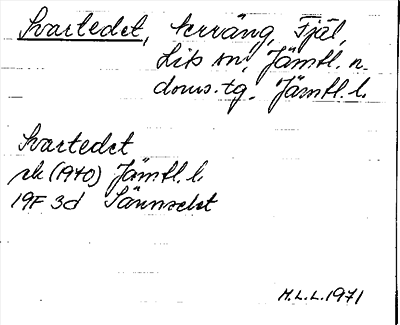 Svartedet, terräng, Fjäl,
Lits sn, Jämtl. n.
doms.tg. Jämtl. l.
Svartedet
ek (1940) Jämtl. l.
19F 3d Sännsebt
M.L.L. 1971